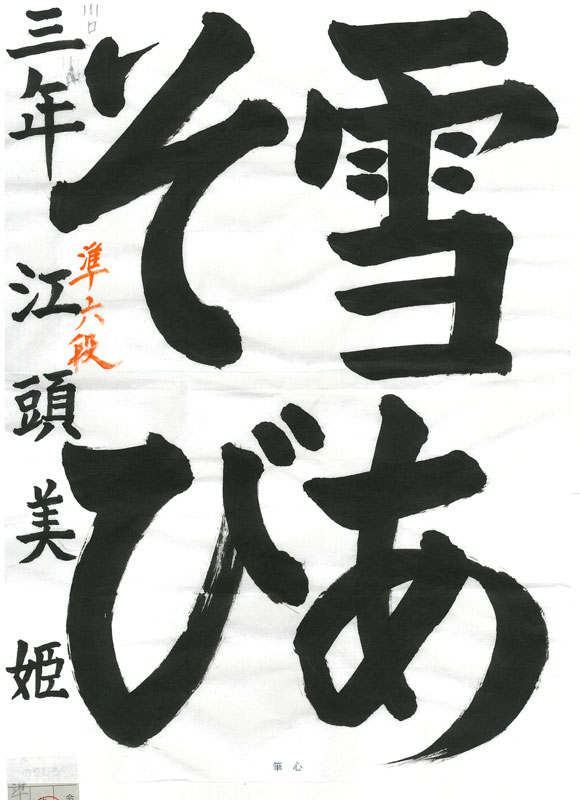 雪あ
そび
三年 江頭美姫
準六段
川口
筆心
準